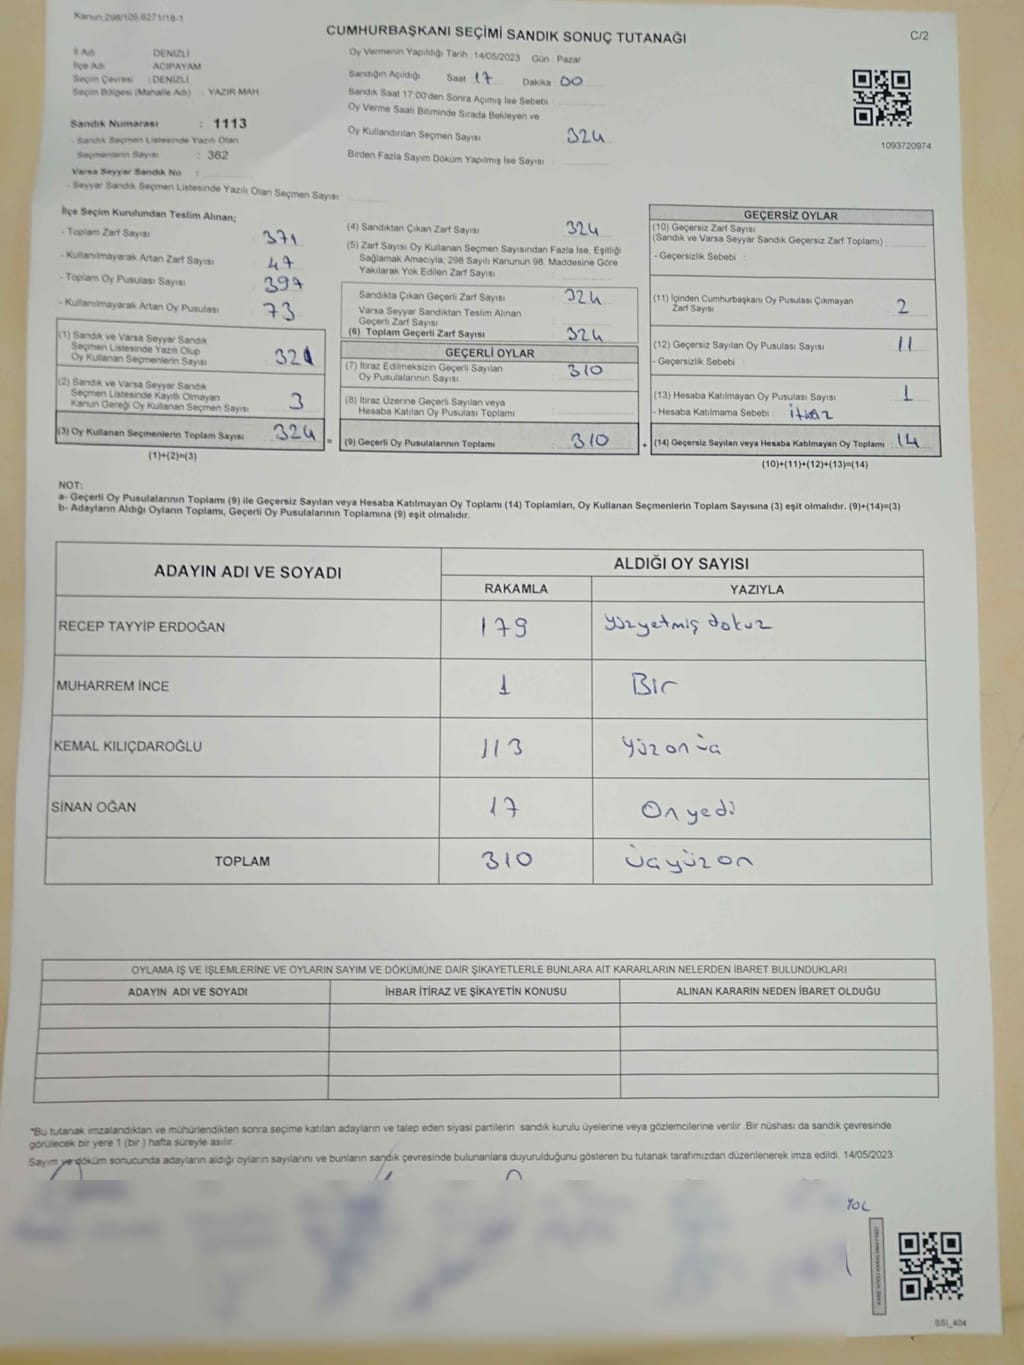 Kanun:298/105,6271/18-1
CUMHURBAŞKANI SEÇİMİ SANDIK SONUÇ TUTANAĞI
C/2
İl Adı DENİZLİ
İlçe Adı ACIPAYAM
Seçim Çevresi : DENİZLİ
Seçim Bölgesi (Mahalle Adı) : YAZIR MAH
Sandık Numarası : 1113
- Sandık Seçmen Listesinde Yazılı Olan
Seçmenlerin Sayısı : 362
Varsa Seyyar Sandık No :
- Seyyar Sandık Seçmen Listesinde Yazılı Olan Seçmen Sayısı
Oy Vermenin Yapıldığı Tarih : 14/05/2023 Gün : Pazar
Sandığın Açıldığı Saat : 17 Dakika : 00
Sandık Saat 17:00'den Sonra Açılmış İse Sebebi
Oy Verme Saati Bitiminde Sırada Bekleyen ve
Oy Kullandırılan Seçmen Sayısı 324
Birden Fazla Sayım Döküm Yapılmış İse Sayısı :
1093720974
İlçe Seçim Kurulundan Teslim Alınan;
- Toplam Zarf Sayısı : 371
- Kullanılmayarak Artan Zarf Sayısı : 47
- Toplam Oy Pusulası Sayısı : 397
- Kullanılmayarak Artan Oy Pusulası : 73
(1) Sandık ve Varsa Seyyar Sandık
Seçmen Listesinde Yazılı Olup
Oy Kullanan Seçmenlerin Sayısı : 321
(2) Sandık ve Varsa Seyyar Sandık
Seçmen Listesinde Kayıtlı Olmayan
Kanun Gereği Oy Kullanan Seçmen Sayısı : 3
(3) Oy Kullanan Seçmenlerin Toplam Sayısı : 324 =
(1)+(2)=(3)
(4) Sandıktan Çıkan Zarf Sayısı : 324
(5) Zarf Sayısı Oy Kullanan Seçmen Sayısından Fazla İse, Eşitliği
Sağlamak Amacıyla, 298 Sayılı Kanunun 98. Maddesine Göre
Yakılarak Yok Edilen Zarf Sayısı :
Sandıkta Çıkan Geçerli Zarf Sayısı : 324
Varsa Seyyar Sandıktan Teslim Alınan
Geçerli Zarf Sayısı :
(6) Toplam Geçerli Zarf Sayısı : 324
GEÇERLİ OYLAR
(7) İtiraz Edilmeksizin Geçerli Sayılan
Oy Pusulalarının Sayısı : 310
(8) İtiraz Üzerine Geçerli Sayılan veya
Hesaba Katılan Oy Pusulası Toplamı :
(9) Geçerli Oy Pusulalarının Toplamı : 310 +
GEÇERSİZ OYLAR
(10) Geçersiz Zarf Sayısı
(Sandık ve Varsa Seyyar Sandık Geçersiz Zarf Toplamı)
- Geçersizlik Sebebi :
(11) İçinden Cumhurbaşkanı Oy Pusulası Çıkmayan
Zarf Sayısı : 2
(12) Geçersiz Sayılan Oy Pusulası Sayısı : 11
- Geçersizlik Sebebi :
(13) Hesaba Katılmayan Oy Pusulası Sayısı : 1
- Hesaba Katılmama Sebebi : itiraz
(14) Geçersiz Sayılan veya Hesaba Katılmayan Oy Toplamı : 14
(10)+(11)+(12)+(13)=(14)
NOT:
a- Geçerli Oy Pusulalarının Toplamı (9) ile Geçersiz Sayılan veya Hesaba Katılmayan Oy Toplamı (14) Toplamları, Oy Kullanan Seçmenlerin Toplam Sayısına (3) eşit olmalıdır. (9)+(14)=(3)
b- Adayların Aldığı Oyların Toplamı, Geçerli Oy Pusulalarının Toplamına (9) eşit olmalıdır.
ADAYIN ADI VE SOYADI
ALDIĞI OY SAYISI
RAKAMLA YAZIYLA
RECEP TAYYİP ERDOĞAN 179 yüzyetmiş dokuz
MUHARREM İNCE 1 Bir
KEMAL KILIÇDAROĞLU 113 yüzonüç
SİNAN OĞAN 17 Onyedi
TOPLAM 310 üçyüzon
OYLAMA İŞ VE İŞLEMLERİNE VE OYLARIN SAYIM VE DÖKÜMÜNE DAİR ŞİKAYETLERLE BUNLARA AİT KARARLARIN NELERDEN İBARET BULUNDUKLARI
ADAYIN ADI VE SOYADI İHBAR İTİRAZ VE ŞİKAYETİN KONUSU ALINAN KARARIN NEDEN İBARET OLDUĞU
*Bu tutanak imzalandıktan ve mühürlendikten sonra seçime katılan adayların ve talep eden siyasi partilerin sandık kurulu üyelerine veya gözlemcilerine verilir .Bir nüshası da sandık çevresinde
görülecek bir yere 1 (bir ) hafta süreyle asılır.
Sayım ve döküm sonucunda adayların aldığı oyların sayılarını ve bunların sandık çevresinde bulunanlara duyurulduğunu gösteren bu tutanak tarafımızdan düzenlenerek imza edildi. 14/05/2023
YOL
SSI_404